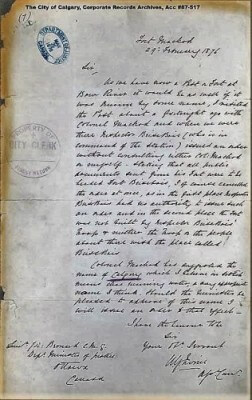 The City of Calgary, Corporate Records Archives, Acc #87-517
Fort Macleod
29th February 1876
Sir,
As we have now a Post or Fort at
Bow River it would be as well if it
was known by some name. I visited
the Post about a fortnight ago with
Colonel Macleod and when we were
there Inspector Brisebois (who is in
command of the Station) issued an order
without consulting either Col Macleod
or myself stating that all public
documents sent from his Fort were to be
headed Fort Brisebois. I of course cancelled
the order at once, as in the first place Inspector
Brisebois had no authority to issue such
an order and in the second place the Fort
was not built by Inspector Brisebois'
Troop & neither the Troop or the people
about there wish the place called
Brisebois
Colonel Macleod has suggested the
name of Calgary which I believe in Scotch
means clear running water, a very appropriate
name I think. Should the Minister be
pleased to approve of this name I
will issue an order to that effect.
I have the honour to be
Sir
Your Obt Servant
Ottawa
Canada
PROPERTY OF
CITY CLERK